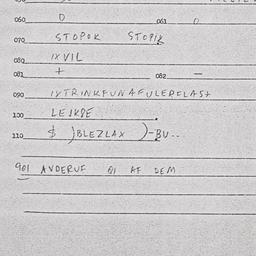 050 0 061 0
070 STOPOK STOPIK
080 IXVIL
081 + 082 -
090 IXTRINKFUNAFULEPELAST
100 LEIKDE
110 $ )BLEZLAX )-BU--
901 AVDERUF QI AF DEM